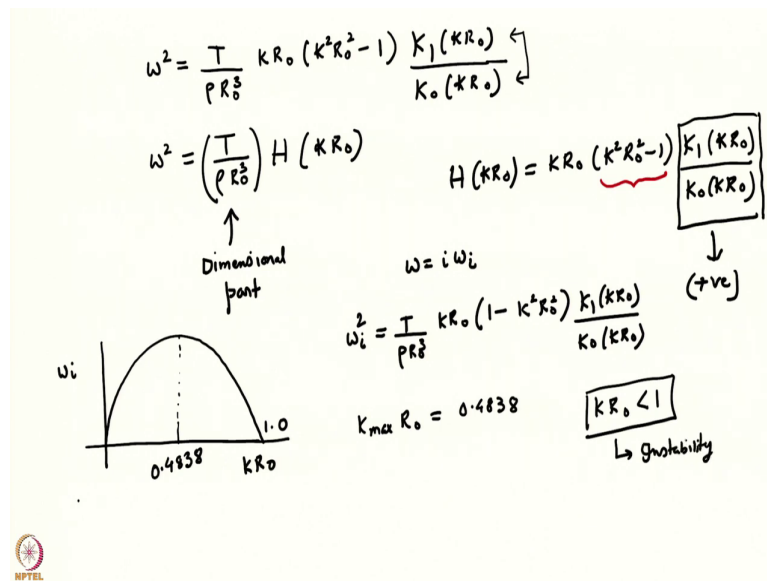 ω² = T/(ρR₀³) kR₀ (k²R₀² - 1) K₁(kR₀)/K₀(kR₀)
ω² = (T/(ρR₀³)) H(kR₀)
H(kR₀) = kR₀ (k²R₀² - 1) K₁(kR₀)/K₀(kR₀)
Dimensional
part
(+ve)
ω = iωᵢ
ωᵢ² = T/(ρR₀³) kR₀ (1 - k²R₀²) K₁(kR₀)/K₀(kR₀)
ωᵢ
1.0
0.4838
kR₀
kₘₐₓ R₀ = 0.4838
kR₀ < 1
↳ Instability
NPTEL